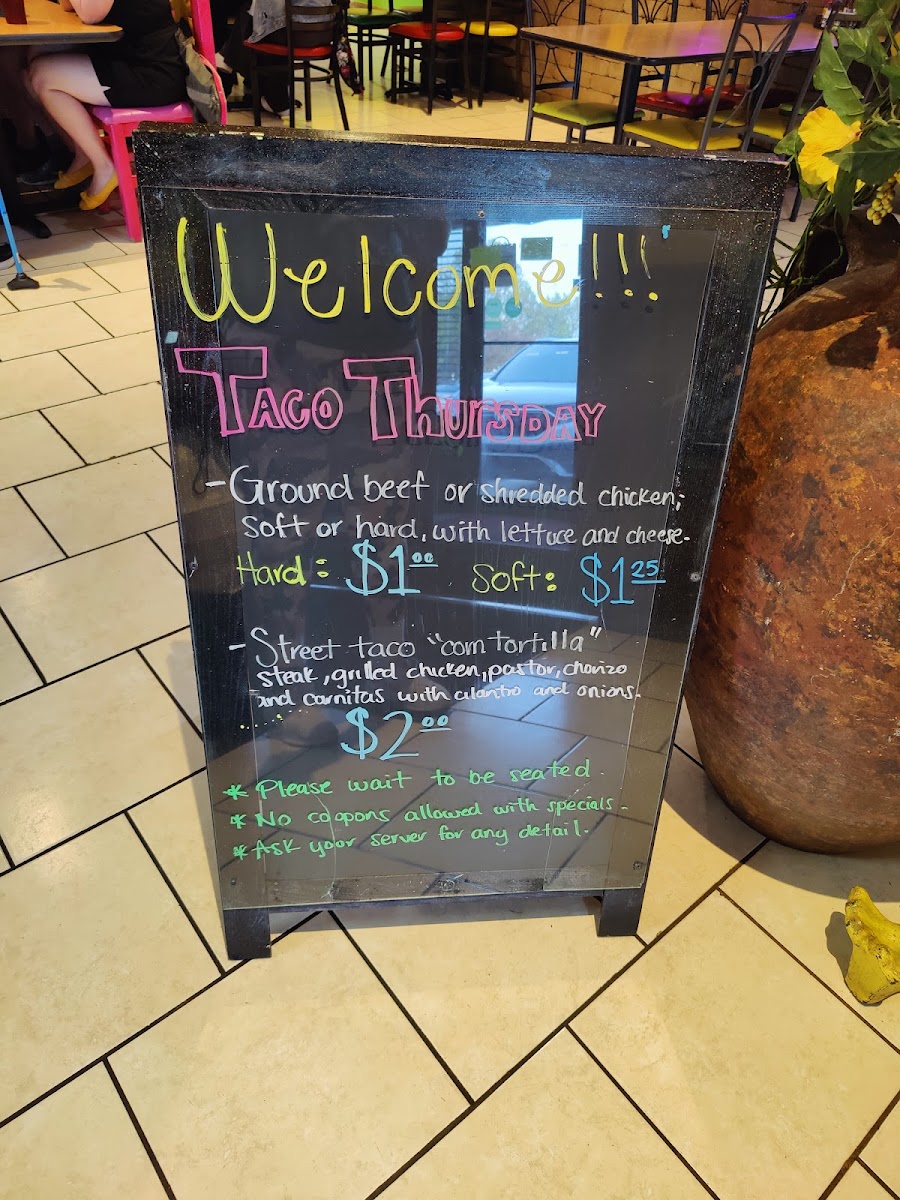 Welcome!!!
TACO THURSDAY
- Ground beef or shredded chicken;
soft or hard, with lettuce and cheese.
Hard: $1.00 Soft: $1.25
- Street taco "corn tortilla"
steak, grilled chicken, pastor, chorizo
and carnitas with cilantro and onions.
$2.00
* Please wait to be seated.
* No coopons allowed with specials.
* Ask your server for any detail.